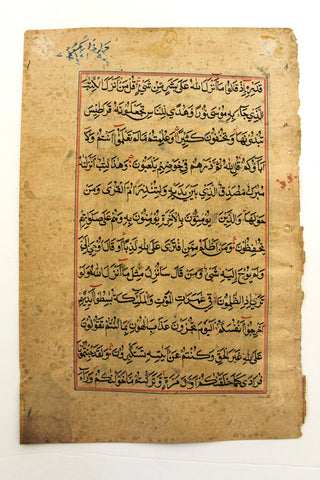 قَدْرِهِ إِذْ قَالُوا مَا أَنْزَلَ اللّٰهُ عَلَىٰ بَشَرٍ مِنْ شَيْءٍ قُلْ مَنْ أَنْزَلَ الْكِتٰبَ
الَّذِي جَاءَ بِهِ مُوسَىٰ نُورًا وَهُدًى لِلنَّاسِ تَجْعَلُونَهُ قَرَاطِيسَ
تُبْدُونَهَا وَتُخْفُونَ كَثِيرًا وَعُلِّمْتُمْ مَا لَمْ تَعْلَمُوا أَنْتُمْ وَلَا
آبَاؤُكُمْ قُلِ اللّٰهُ ثُمَّ ذَرْهُمْ فِي خَوْضِهِمْ يَلْعَبُونَ وَهٰذَا كِتٰبٌ أَنْزَلْنٰهُ
مُبٰرَكٌ مُصَدِّقُ الَّذِي بَيْنَ يَدَيْهِ وَلِتُنْذِرَ أُمَّ الْقُرَىٰ وَمَنْ
حَوْلَهَا وَالَّذِينَ يُؤْمِنُونَ بِالْآخِرَةِ يُؤْمِنُونَ بِهِ وَهُمْ عَلَىٰ صَلَوٰتِهِمْ
يُحٰفِظُونَ وَمَنْ أَظْلَمُ مِمَّنِ افْتَرَىٰ عَلَى اللّٰهِ كَذِبًا أَوْ قَالَ أُوحِيَ إِلَيَّ
وَلَمْ يُوحَ إِلَيْهِ شَيْءٌ وَمَنْ قَالَ سَأُنْزِلُ مِثْلَ مَا أَنْزَلَ اللّٰهُ وَلَوْ
تَرَىٰ إِذِ الظّٰلِمُونَ فِي غَمَرَاتِ الْمَوْتِ وَالْمَلٰئِكَةُ بَاسِطُوا أَيْدِيهِمْ
أَخْرِجُوا أَنْفُسَكُمُ الْيَوْمَ تُجْزَوْنَ عَذَابَ الْهُونِ بِمَا كُنْتُمْ تَقُولُونَ
عَلَى اللّٰهِ غَيْرَ الْحَقِّ وَكُنْتُمْ عَنْ آيٰتِهِ تَسْتَكْبِرُونَ وَلَقَدْ جِئْتُمُونَا
فُرَادَىٰ كَمَا خَلَقْنٰكُمْ أَوَّلَ مَرَّةٍ وَتَرَكْتُمْ مَا خَوَّلْنٰكُمْ وَرَاءَ